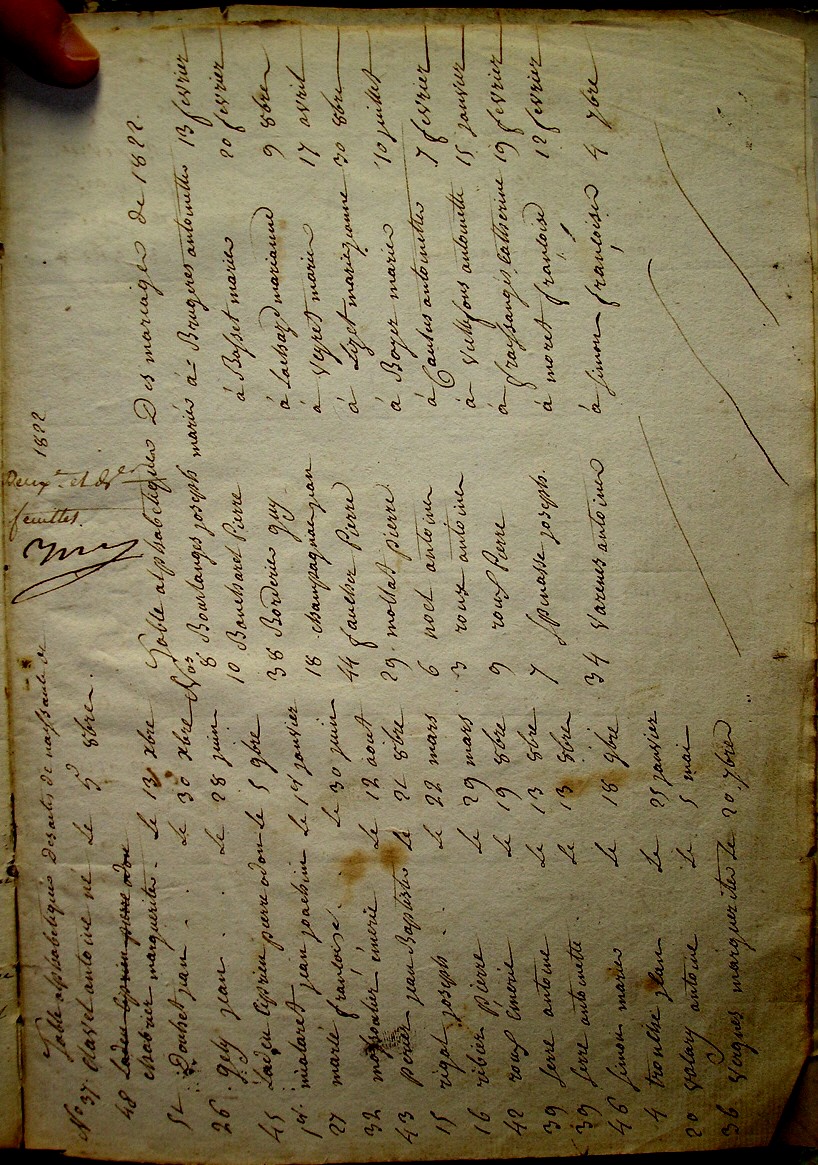 Table alphabétique des actes de naissance de 1822
Deux.e et d.re
feuilles.
No 37. Clavel antoine né Le 5 8bre.
48 Ladou Ciprien pierre odon
chabrier marguerite. Le 13 xbre
52 Douhet jean . . Le 30 xbre
26 . gely jean . . Le 28 juin
45 Ladou Ciprien pierre odon Le 5 9bre
1er. miolaret jean joachim Le 14 janvier
27 marlé francoise . . Le 30 juin
32 émerie Le 12 aout
43 Perier jean Baptiste Le 22 8bre
15 rigal joseph . . Le 22 mars
16 ribier Pierre Le 29 mars
42 roux émerie Le 19 8bre
39 serre antoine Le 13 8bre
39 serre antoinette . Le 13 8bre
46 Simon marie Le 18 9bre
4 tronche jean Le 25 janvier
20 valary antoine Le 5 mai
36 vergnes marguerite Le 20. 7bre
Table alphabétique Des mariages de 1822.
Nos
8 Bourlanges joseph marié à = Brugeres antoinette 13 fevrier
10 Boucharet Pierre à Basset marie 20 fevrier
38 Borderie guy à Lachaze marianne 9 8bre
18 champagnac jean à Veyret marie 17 avril
44 faucher Pierre à Lizet marie jeanne 30 8bre
29 . mollat pierre à Boyer marie 10 juillet
6 noel antoine à Cautus antoinette 7 fevrier
3 roux antoine à antoinette 15 janvier
9 roux Pierre à fraissanges Catherine 19 fevrier
7 Spinasse joseph. à moret francoise 12 fevrier
34 Varenes antoine à Simon francoise 4 7bre